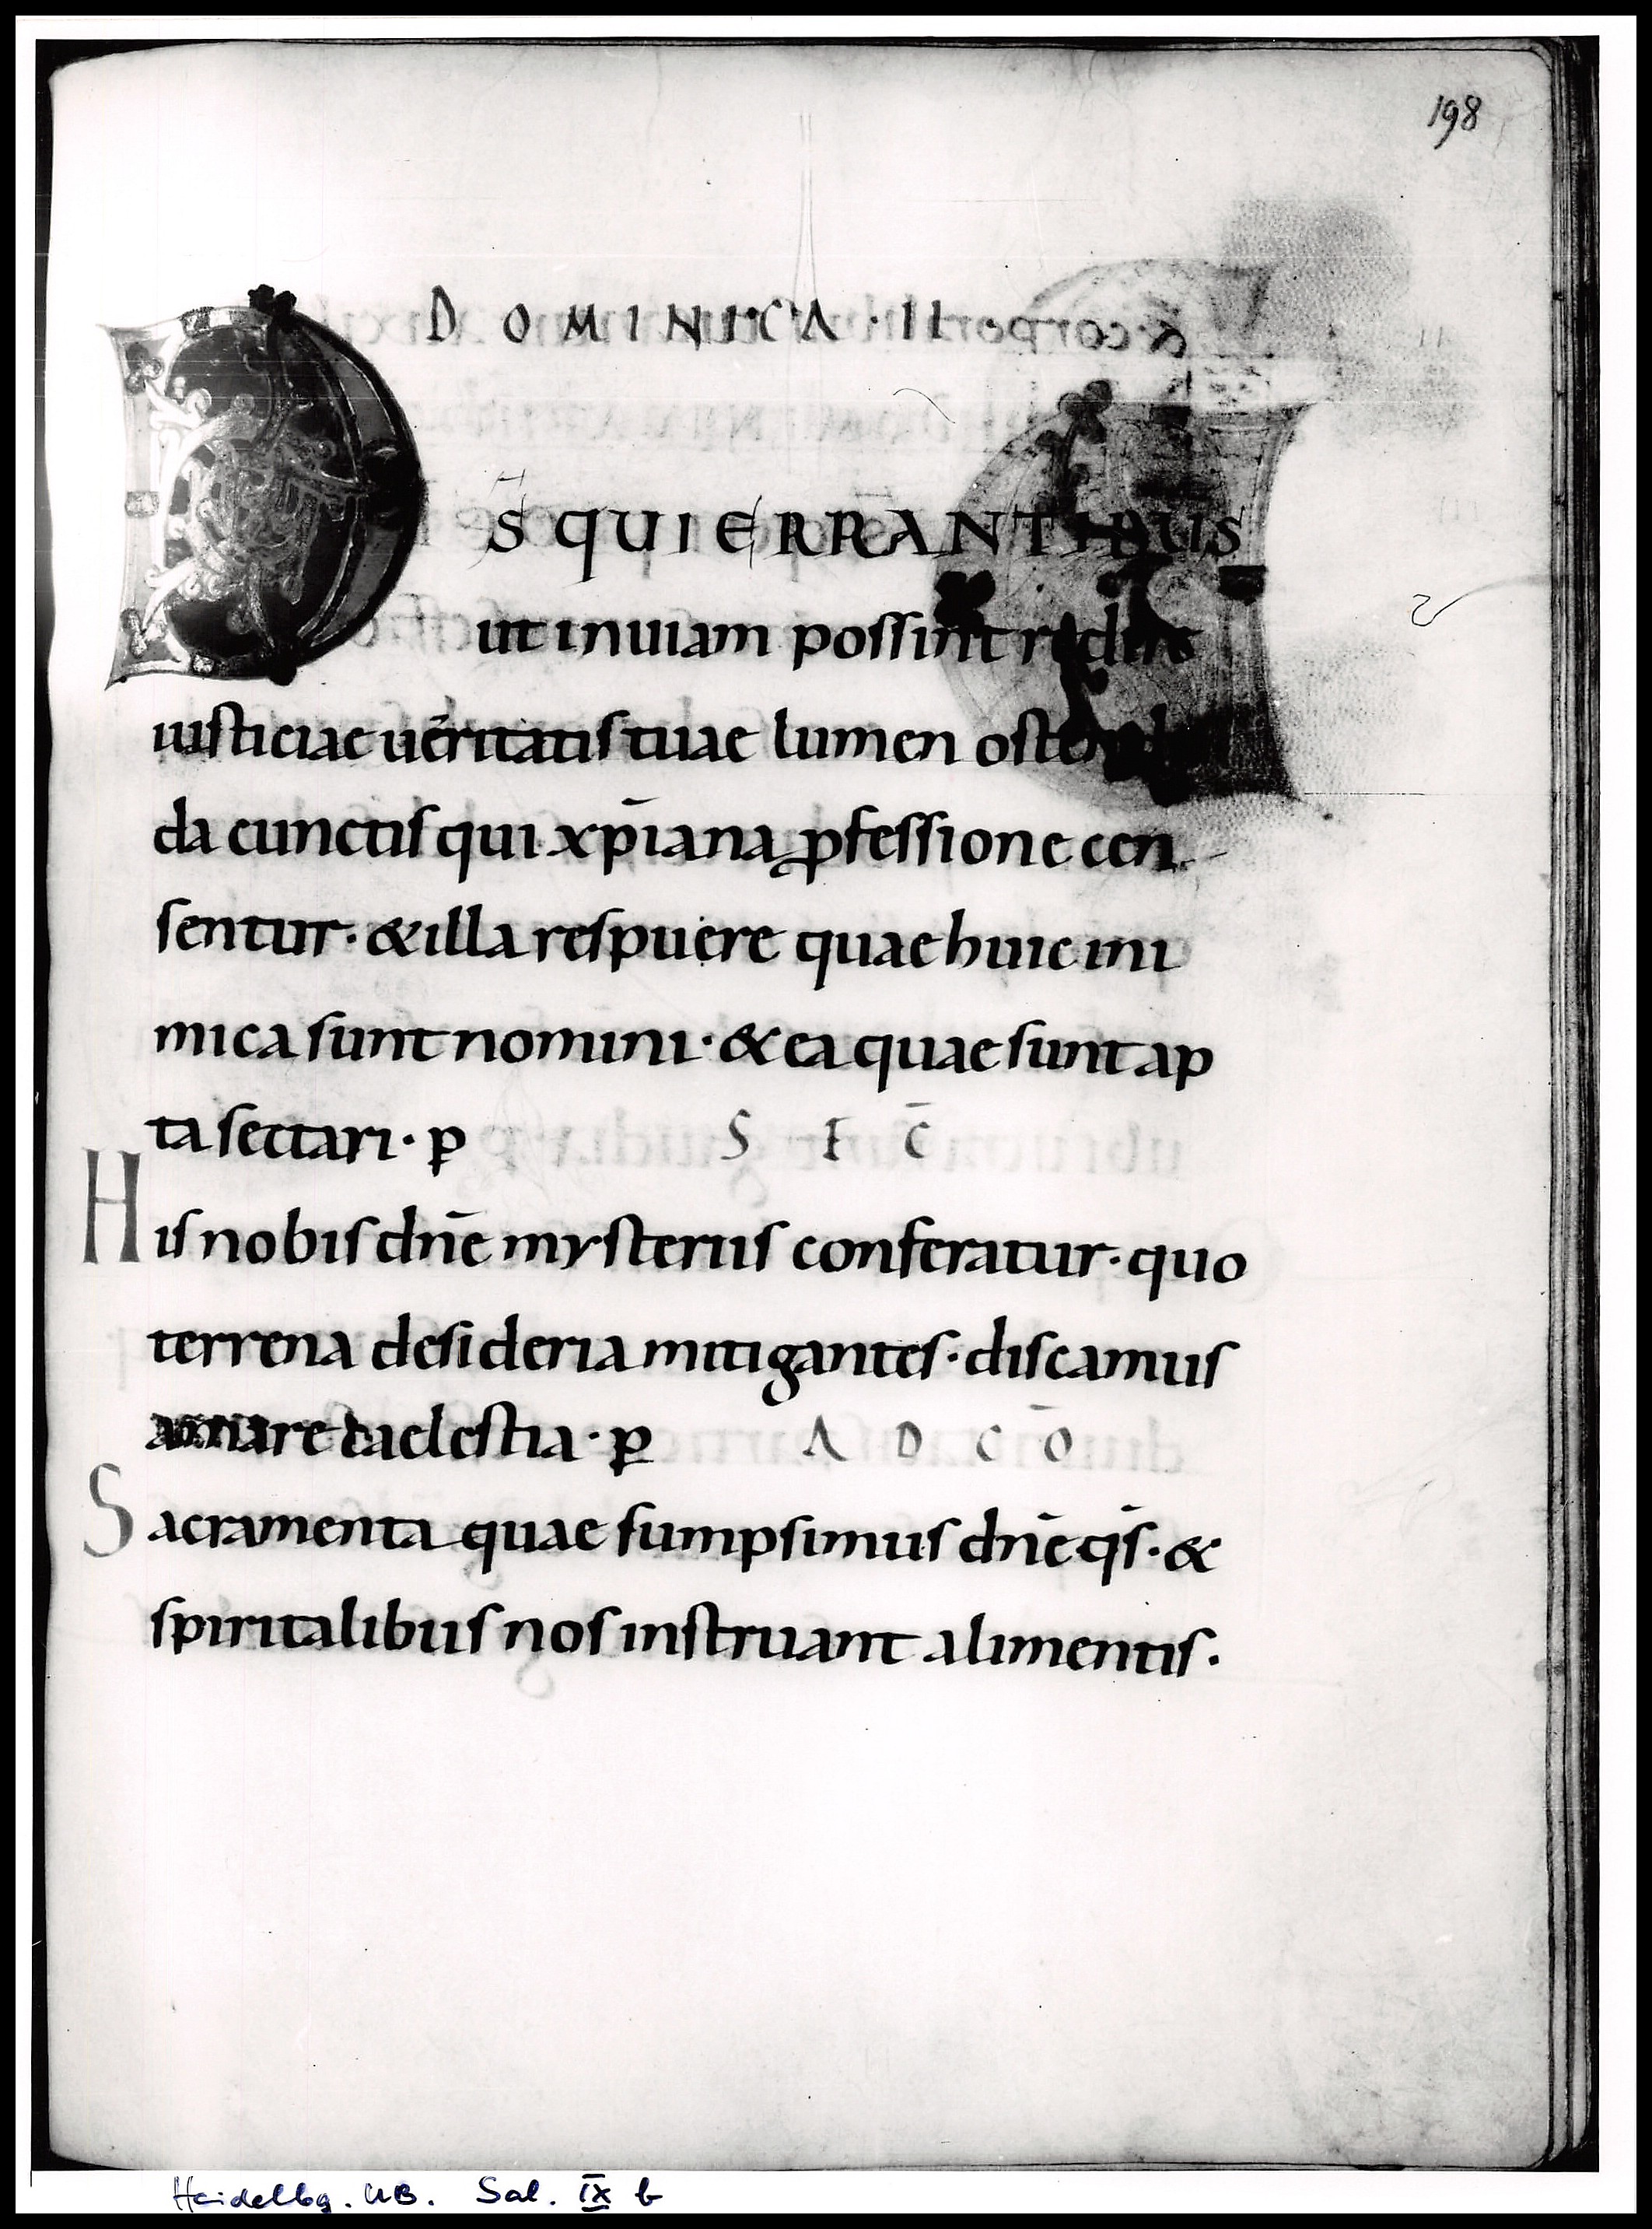 198
DOMINICA · II ·
DS̄ QUI ERRANTIBUS
ut in uiam possint redire
iusticiae ueritatis tuae lumen osten
da cunctis qui xp̄iana ꝓfessione cen
sentur · & illa respuere quae huic ini
mica sunt nomini · & ea quae sunt ap
ta sectari · p
SEC̄
His nobis dnē mysteriis conferatur · quo
terrena desideria mitigantes · discamus
amare caelestia · p
ADCŌ
Sacramenta quae sumpsimus dnē qs̄ · &
spiritalibus nos instruant alimentis ·
Heidelbg. UB. Sal. IX b